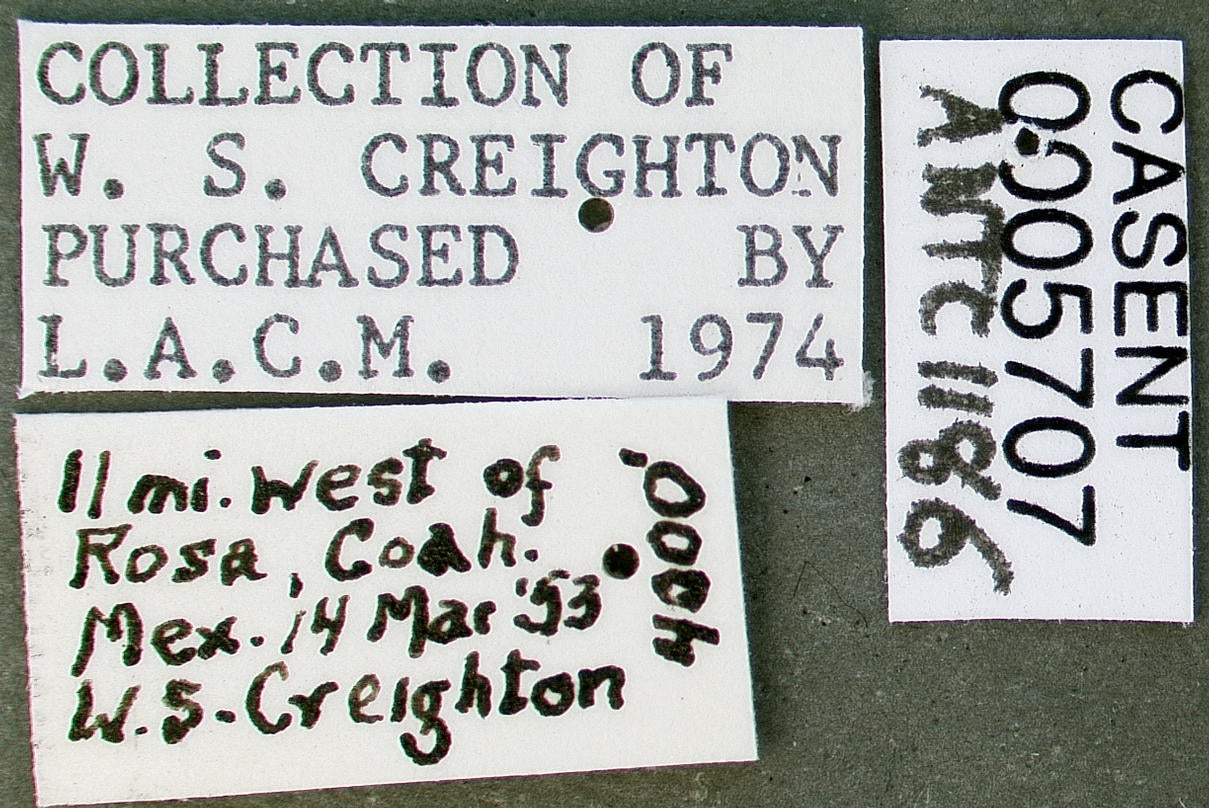 COLLECTION OF
W. S. CREIGHTON
PURCHASED BY
L.A.C.M. 1974
11 mi. west of
Rosa, Coah.
Mex. 14 Mar '53
W.S. Creighton
4000'
CASENT
0005707
ANTC11186